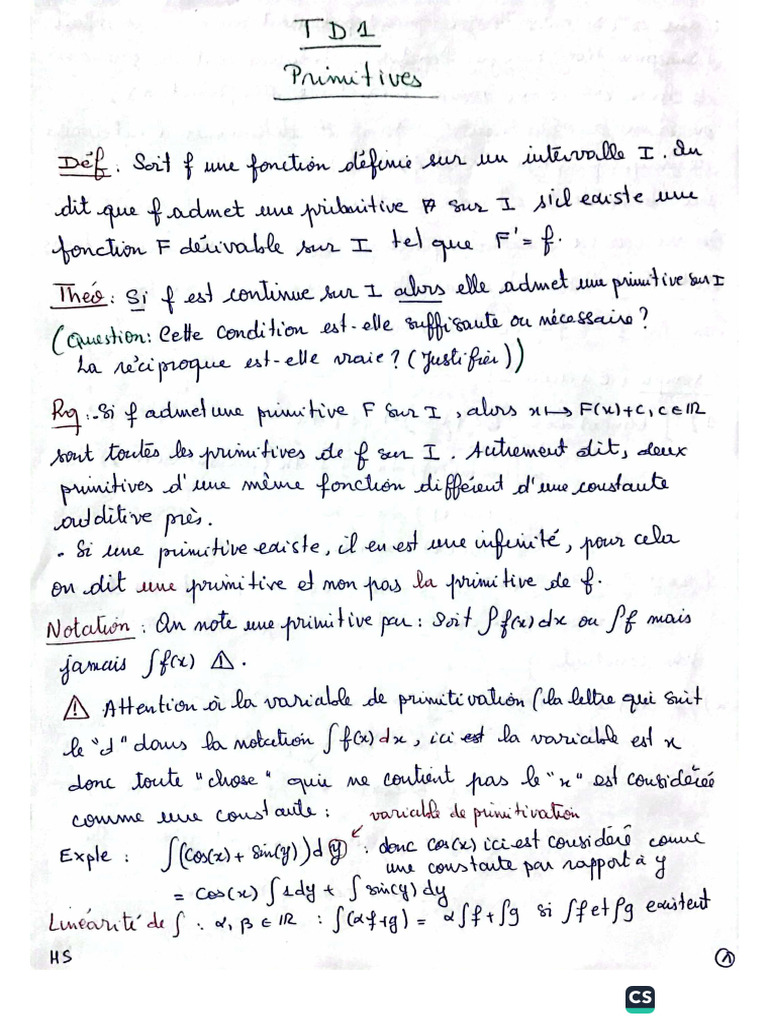 TD1
Primitives
Déf : Soit f une fonction définie sur un intervalle I. On
dit que f admet une primitive sur I s'il existe une
fonction F dérivable sur I tel que F' = f.
Théo : Si f est continue sur I alors elle admet une primitive sur I
(Question: Cette condition est-elle suffisante ou nécessaire?
La réciproque est-elle vraie? (Justifier))
Rq : - Si f admet une primitive F sur I, alors x ↦ F(x)+c, c ∈ ℝ
sont toutes les primitives de f sur I. Autrement dit, deux
primitives d'une même fonction diffèrent d'une constante
additive près.
- Si une primitive existe, il en est une infinité, pour cela
on dit une primitive et non pas la primitive de f.
Notation : On note une primitive par : Soit ∫f(x)dx ou ∫f mais
jamais ∫f(x) ⚠.
⚠ Attention à la variable de primitivation (la lettre qui suit
le "d" dans la notation ∫f(x)dx, ici est la variable est x
donc toute "chose" qui ne contient pas le "x" est considérée
comme une constante :
variable de primitivation
Exple : ∫(cos(x) + sin(y))dy : donc cos(x) ici est considéré comme
une constante par rapport à y
= cos(x) ∫1dy + ∫sin(y)dy
Linéarité de ∫ : α, β ∈ ℝ : ∫(αf+g) = α∫f + ∫g si ∫f et ∫g existent
HS
1
CS